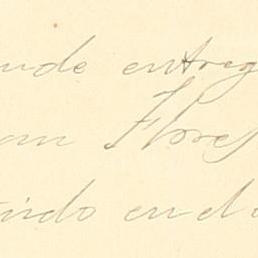 nde entreg
an Flores
tuido en el